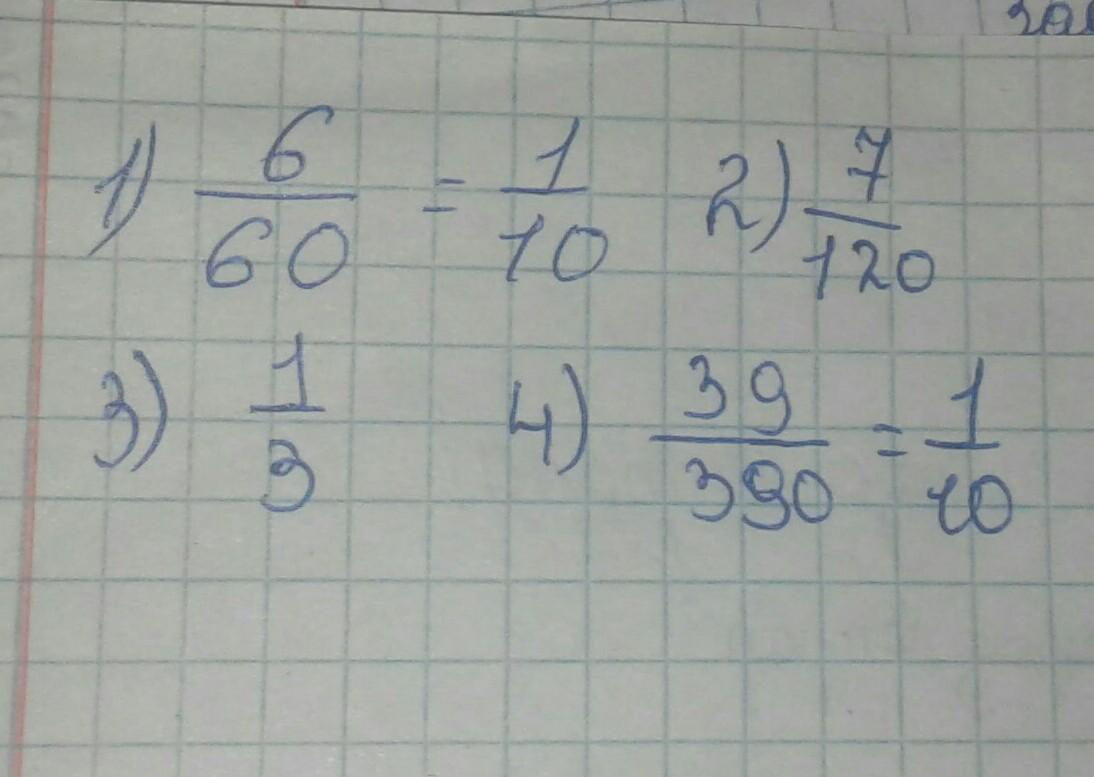 1) 6/60 = 1/10 2) 7/120
3) 1/3 4) 39/390 = 1/10